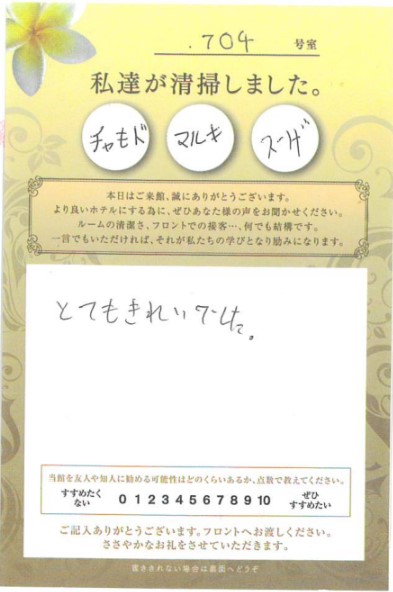 .704 号室
私達が清掃しました。
チャモド マルキ スーザ
本日はご来館、誠にありがとうございます。
より良いホテルにする為に、ぜひあなた様の声をお聞かせください。
ルームの清潔さ、フロントでの接客…、何でも結構です。
一言でもいただければ、それが私たちの学びとなり励みになります。
とてもきれいでした。
当館を友人や知人に勧める可能性はどのくらいあるか、点数で教えてください。
すすめたくない 0 1 2 3 4 5 6 7 8 9 10 ぜひすすめたい
ご記入ありがとうございます。フロントへお渡しください。
ささやかなお礼をさせていただきます。
書ききれない場合は裏面へどうぞ